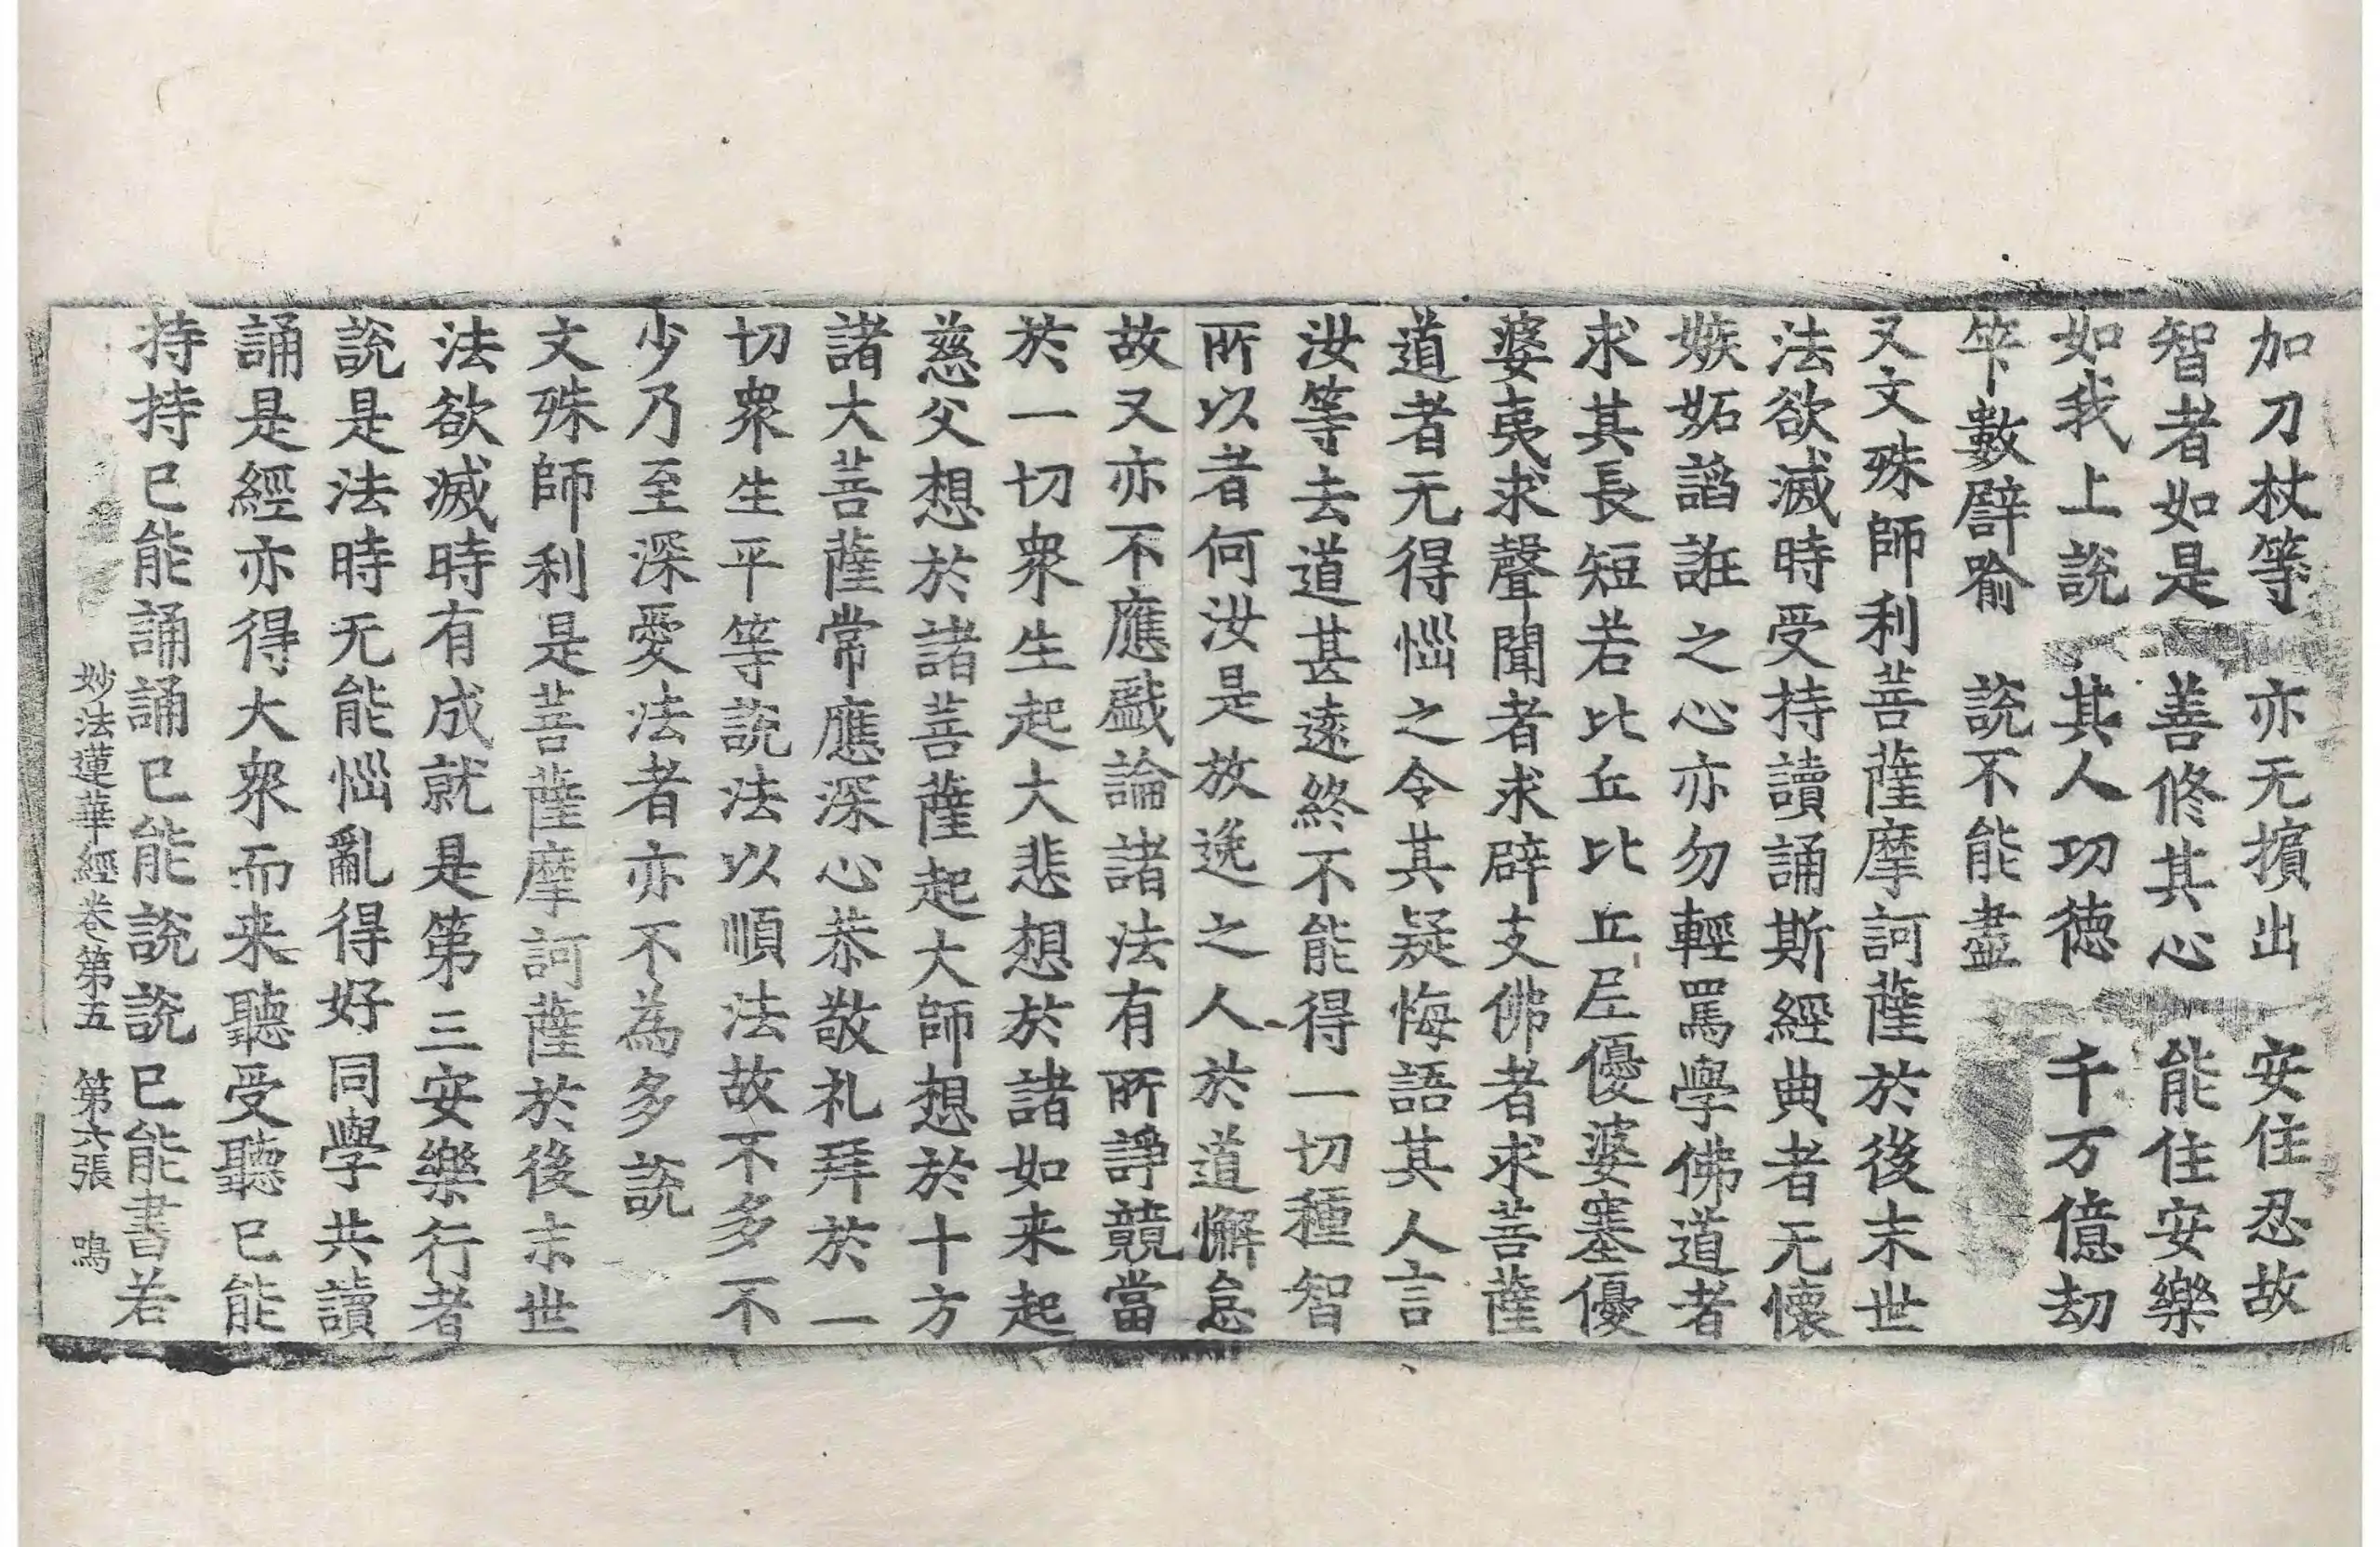 加刀杖等 亦无擯出 安住忍故
智者如是 善修其心 能住安樂
如我上說 其人功德 千万億劫
筭數譬喻 說不能盡
又文殊師利菩薩摩訶薩於後末世
法欲滅時受持讀誦斯經典者无懷
嫉妬諂誑之心亦勿輕罵學佛道者
求其長短若比丘比丘尼優婆塞優
婆夷求聲聞者求辟支佛者求菩薩
道者无得惱之令其疑悔語其人言
汝等去道甚遠終不能得一切種智
所以者何汝是放逸之人於道懈怠
故又亦不應戱論諸法有所諍競當
於一切衆生起大悲想於諸如来起
慈父想於諸菩薩起大師想於十方
諸大菩薩常應深心恭敬礼拜於一
切衆生平等說法以順法故不多不
少乃至深愛法者亦不為多說
文殊師利是菩薩摩訶薩於後末世
法欲滅時有成就是第三安樂行者
說是法時无能惱亂得好同學共讀
誦是經亦得大衆而来聽受聽已能
持持已能誦誦已能說說已能書若
妙法蓮華經卷第五 第六張 鳴